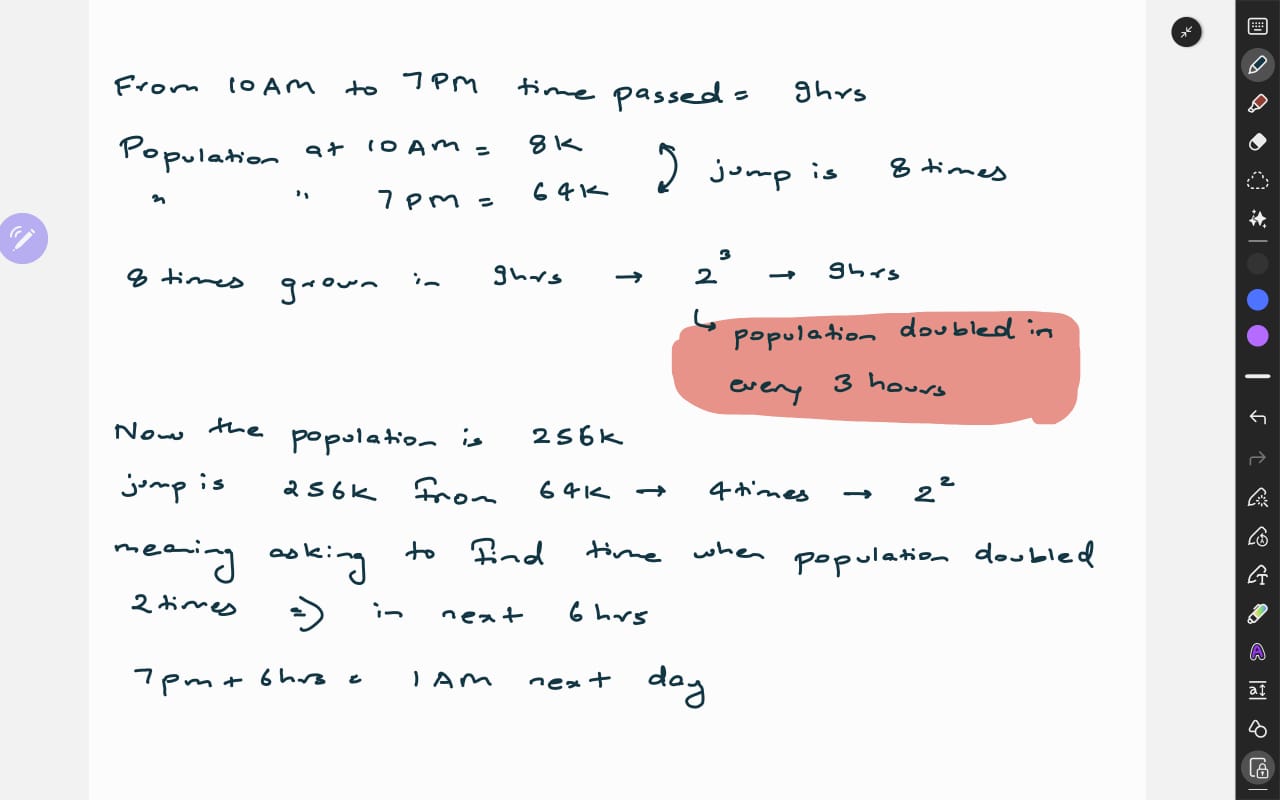 From 10AM to 7PM time passed = 9hrs
Population at 10AM = 8K
" " 7pm = 64K
jump is 8 times
8 times grown in 9hrs → 2³ → 9hrs
↳ population doubled in
every 3 hours
Now the population is 256K
jump is 256K from 64K → 4times → 2²
meaning asking to find time when population doubled
2 times => in next 6 hrs
7pm + 6hrs = 1AM next day